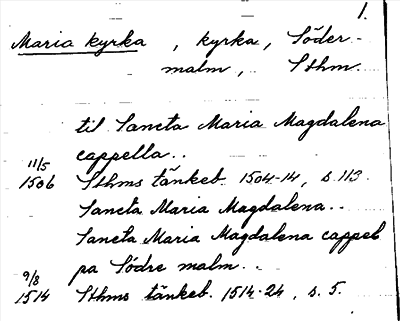 1.
Maria kyrka, kyrka, Söder-
malm, Sthm.
til Sancta Maria Magdalena
cappella..
11/5
1506 Sthms tänkeb. 1504-14, s. 113.
Sancta Maria Magdalena..
Sancta Maria Magdalena cappel
pa Södre malm..
9/8
1514 Sthms tänkeb. 1514-24, s. 5.